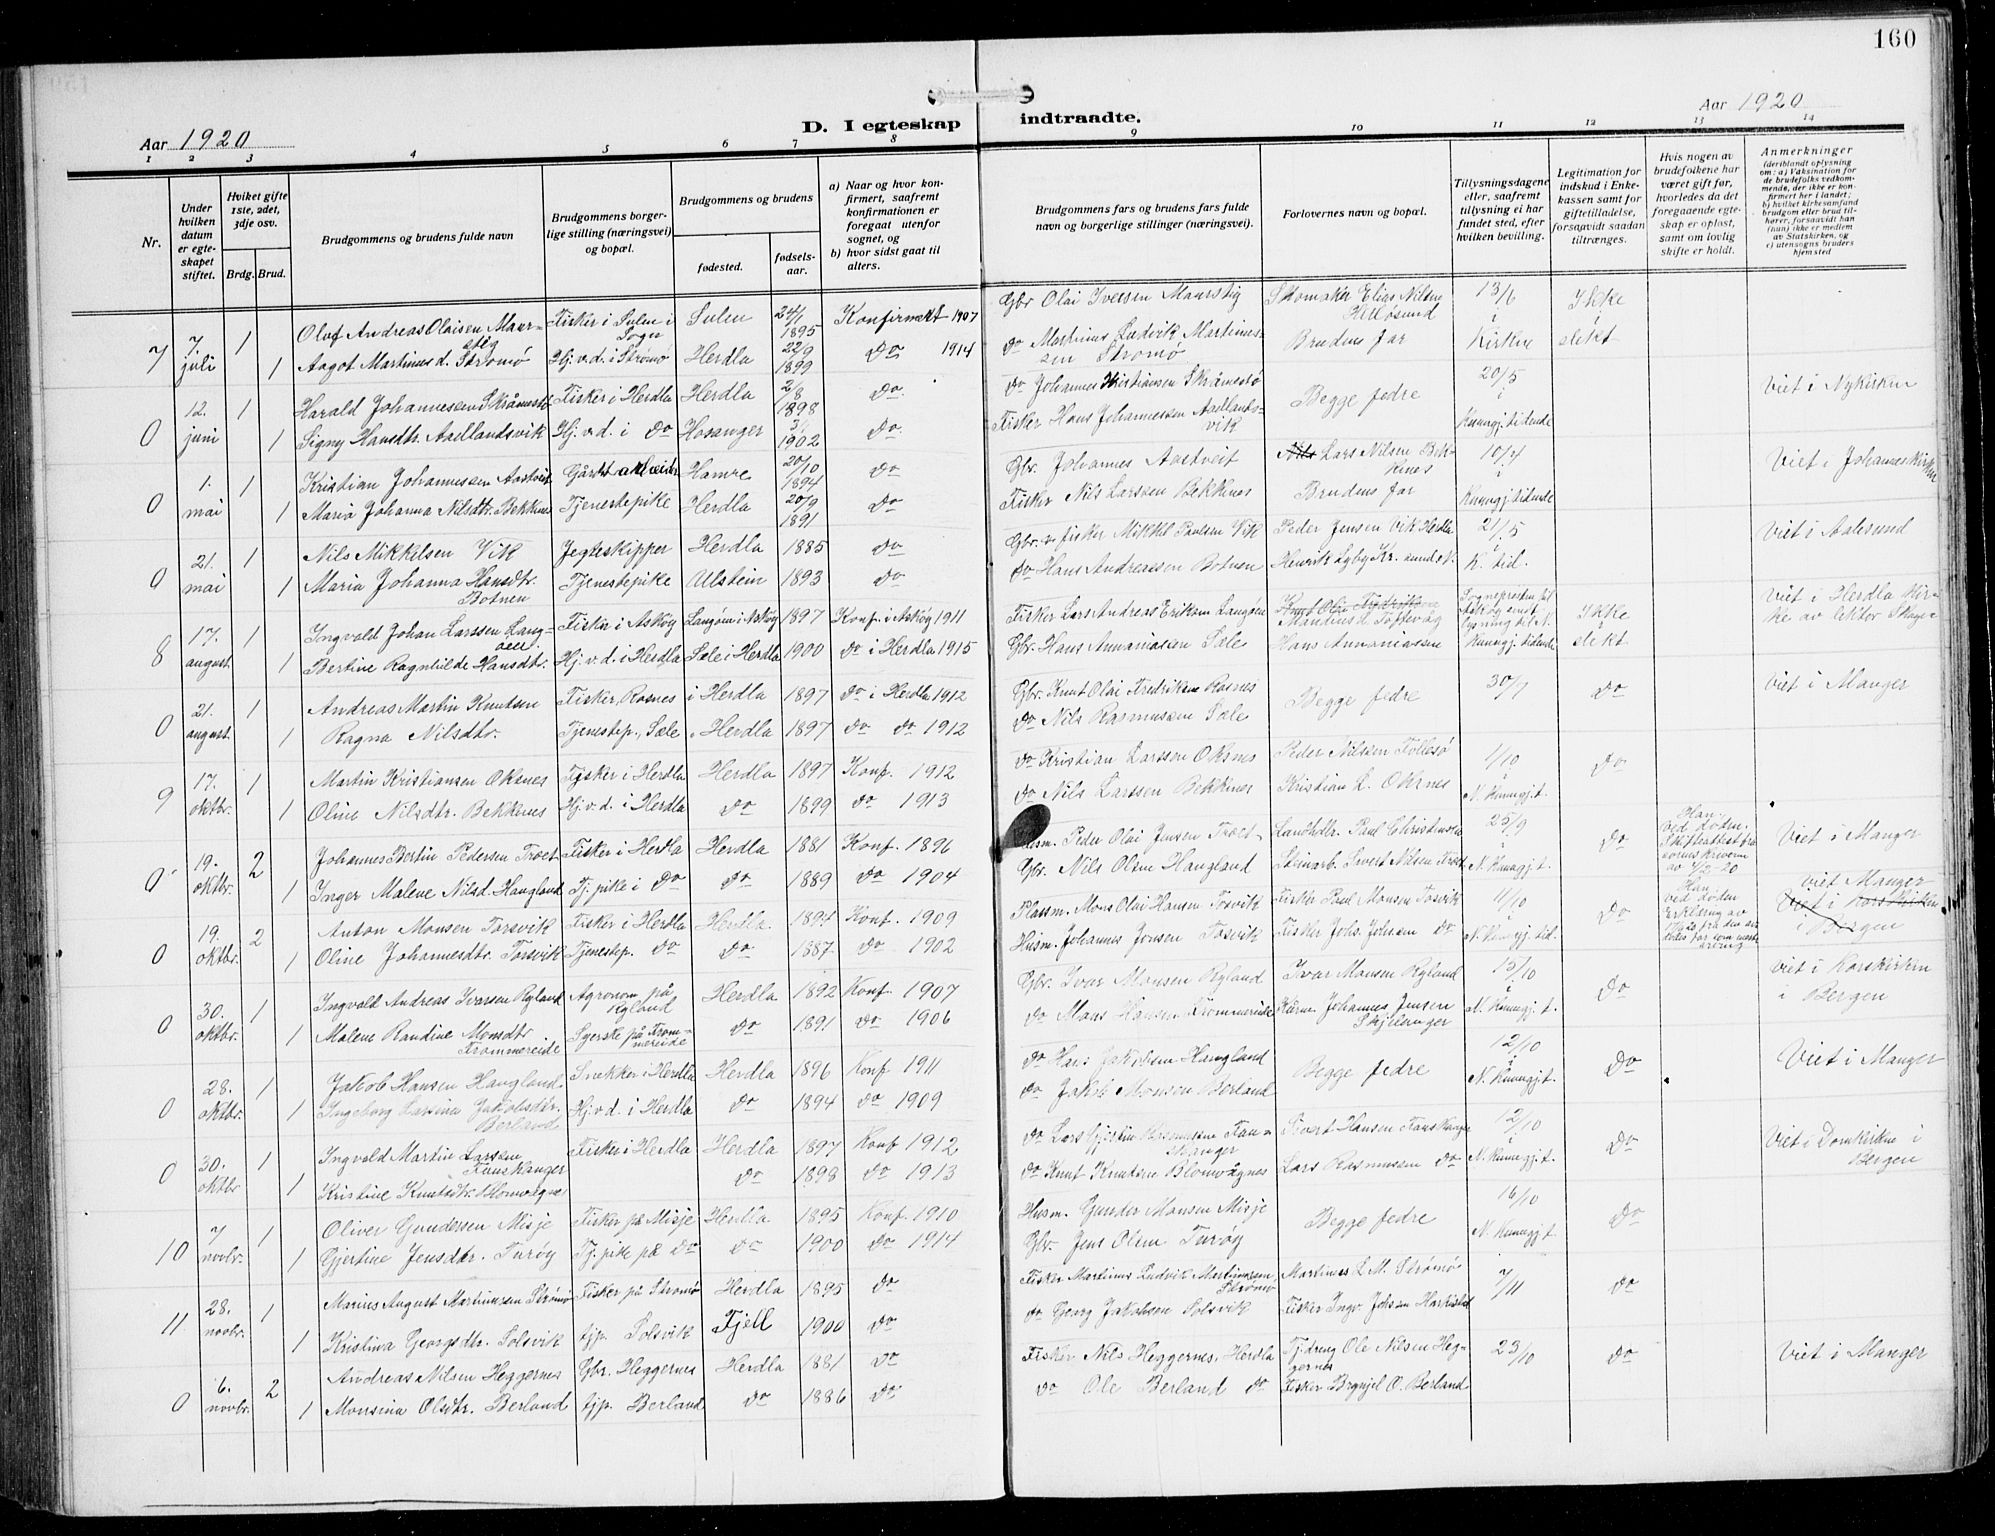 160
Aar 1920
D. I egteskap indtraadte.
Aar 1920
1 2 3 4 5 6 7 8 9 10 11 12 13 14
Nr.
Under hvilken datum er egteskapet stiftet.
Hviket gifte 1ste, 2det, 3dje osv.
Brdg. Brud.
Brudgommens og brudens fulde navn
Brudgommens borgerlige stilling (næringsvei) og bopæl.
Brudgommens og brudens
fødested.
fødselsaar.
a) Naar og hvor konfirmert, saafremt konfirmationen er foregaat utenfor sognet, og
b) hvor sidst gaat til alters.
Brudgommens fars og brudens fars fulde navn og borgerlige stillinger (næringsvei).
Forlovernes navn og bopæl.
Tillysningsdagene eller, saafremt tillysning ei har fundet sted, efter hvilken bevilling.
Legitimation for indskud i Enkekassen samt for giftetilladelse, forsaavidt saadan tiltrænges.
Hvis nogen av brudefolkene har været gift før, hvorledes da det foregaaende egteskap er opløst, samt om lovlig skifte er holdt.
Anmerkninger (deriblandt oplysning om: a) Vaksination for de brudefolks vedkommende, der ikke er konfirmert her i landet; b) hvilket kirkesamfund brudgom eller brud tilhører, forsaavidt han (hun) ikke er medlem av Statskirken, og c) utensogns bruders hjemsted
7 7. juli 1 Olaf Andreas Olaisen Maurstig Fisker i Sulen i Sogn Sulen 24/1 1895 Konfirmert 1907 Gbr Olai Iversen Maurstig Skomaker Elias Nilsen 13/6 Ikke
1 Aagot Martines d. Strømø Hj.v.d. i Strømø Herdla 22/9 1899 do 1914 do Martinus Ludvik Martinussen Strømø Brudens far i Kirken slekt
0 12. juni 1 Harald Johannesen Skråmestø Fisker i Herdla Herdla 2/8 1898 do. do Johannes Kristiansen Skråmestø Begge fedre 20/5 i Viet i Nykirken
1 Signy Hansdtr. Aadlandsvik Hj.v.d. i do Hosanger 1902 do. Fisker Hans Johannessen Aadlandsvik Kunngj.tidende
0 1. mai 1 Kristian Johannessen Aastveit Gårdsarbeider Hamre 20/10 1894 do Gbr. Johannes Aastveit Lars Nilsen Bekkenes 10/4 i Viet i Johanneskirken
1 Maria Johanna Nilsdtr. Bekkenes Tjenestepike Herdla 20/9 1891 do Fisker Nils Larssen Bekkenes Brudens far Kunngj.tidende
0 21. mai 1 Nils Mikkelsen Vik Jegteskipper Herdla 1885 do Gbr. fisker Mikkel Paulsen Vik Peder Jensen Vik Herdla 21/5 i Viet i Aalesund
1 Maria Johanna Hansdtr. Botnen Tjenestepike Ulstein 1893 do do Hans Andreassen Botnen Henrik Lyby Kr. sund N. K. tid.
8 17. august 1 Ingvald Johan Larssen Langøen Fisker i Askøy Langøen i Askøy 1897 Konf. i Askøy 1911 Fisker Lars Andreas Eriksen Langøen Ikke Viet i Herdla kirke av lektor
1 Bertine Ragnhilde Hansdtr. Hj.v.d. i Herdla Sæle i Herdla 1900 do i Herdla 1915 Gbr. Hans Annaniassen Sæle Hans Annaniassen Kunngj. tidende slekt
0 21. august. 1 Andreas Martin Knutsen Fisker, Rosnes i Herdla 1897 do i Herdla 1912 Gbr. Knut Olai Fredriksen Rosnes Begge fedre 30/7 do Viet i Manger
1 Ragna Nilsdtr. Tjenestep., Sæle, Herdla 1897 do do 1912 do Nils Rasmussen Sæle
9 17. oktbr. 1 Martin Kristiansen Oksnes Fisker i Herdla Herdla 1897 Konf. 1912 do Kristian Larssen Oksnes Peder Nilsen Follesø 1/10 i do
1 Oline Nilsdtr. Bekkenes Hj.v.d. i Herdla do 1899 do 1913 do Nils Larssen Bekkenes Kristian L. Oksnes N. Kunngj.t.
0 19. oktbr. 2 Johannes Bertin Pedersen Træet Fisker i Herdla Herdla 1881 Konf. 1896 Husm. Peder Olai Jensen Træet Landhdlr. Paul Christensen 25/9 i do Han: ved døden. Skifteattest fra sorenskriveren av 4/2-20 Viet i Manger
1 Inger Malene Nilsd. Haugland Tj. pike i do do 1889 do 1904 Gbr. Nils Olsen Haugland Stenarb. Sivert Nilsen Træet N. Kunngj.t.
0 19. oktbr. 2 Anton Monsen Torsvik Fisker i Herdla Herdla. 1894 Konf. 1909 Plassm. Mons Olai Hansen Torsvik Fisker Paul Monsen Torsvik 11/10 do Han ved døden Erklæring av Viet Manger Viet i Korskirken i Bergen
1 Oline Johannesdtr. Torsvik Tjenestep. do do 1887 do 1902 Husm. Johannes Jensen Torsvik Fisker Johs. Johsen do N. Kunngj. tid.
0 30. oktbr. 1 Ingvald Andreas Ivarsen Ryland Agronom på Ryland Herdla 1892 Konf. 1907 Gbr. Ivar Monsen Ryland Ivar Monsen Ryland 15/10 i do Viet i Korskirken i Bergen
1 Malene Randine Monsdtr Frommereide Syerske på Frommereide do 1891 do 1906 do Mons Hansen Frommereide Johannes Jensen Skjelanger N. Kunngj.t.
0 28. oktbr. 1 Jakob Hansen Haugland Snekker i Herdla Herdla 1896 Konf. 1911 do Hans Jakobsen Haugland Begge fedre 12/10 i do Viet i Manger
1 Ingeborg Larsina Jakobsdtr. Berland Hj.v.d. i Herdla do 1894 do 1909 do Jakob Monsen Berland N. Kunngj.t.
0 30. oktbr 1 Ingvald Martin Larssen Fauskanger Fisker i Herdla Herdla 1897 Konf 1912 do Lars Gjertin Rasmussen Fauskanger Sivert Hansen Fauskanger 12/10 i do Viet i Domkirken i Bergen
1 Kristine Knutsdtr. Blomvågnes do 1898 do 1913 do Knut Knutsen Blomvågnes Lars Rasmussen do N. Kunngj.t.
10 7 novbr. 1 Oliver Gundersen Misje Fisker på Misje Herdla 1895 Konf. 1910 Husm. Gunder Monsen Misje Begge fedre 16/10 do
1 Gjertine Jensdtr. Turøy Tj. pike på do do 1900 do 1914 Gbr. Jens Olsen Turøy N. Kunngj.t.
11 28. novbr. 1 Marius August Martinussen Strømø Fisker på Strømø Herdla 1895 do Fisker Martinus Ludvik Martinussen Strømø Martinus L.M. Strømø 7/11 do
1 Kristina Georgsdtr. Solsvik tjp. Solsvik Fjell 1900 do do Georg Jakobsen Solsvik Fisker Ingv. Johsen
0 6. novbr. 2 Andreas Nilsen Heggernes Gbr. Heggernes Herdla 1881 do Fisker Nils Heggernes, Herdla Fjdreng Ole Nilsen Heggernes 23/10 do Viet i Manger
1 Monsina Olsdtr. Berland tjp. Berland do 1886 do do Ole Berland do Fisker Brynjel O. Berland